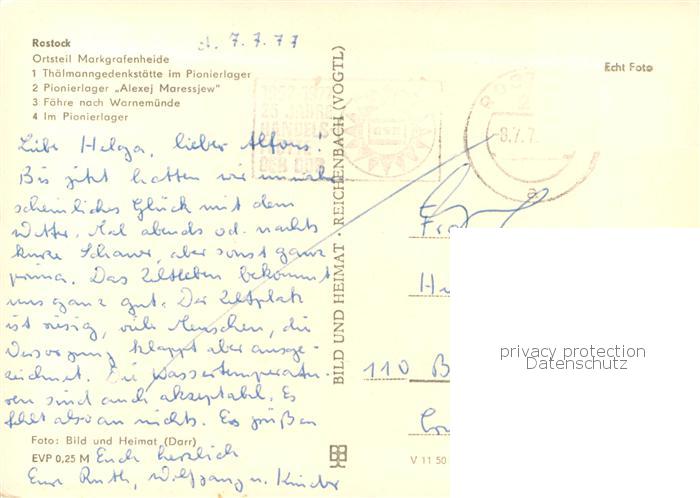 Rostock
Ortsteil Markgrafenheide
1 Thälmanngedenkstätte im Pionierlager
2 Pionierlager „Alexej Maressjew"
3 Fähre nach Warnemünde
4 Im Pionierlager
d. 7.7.77
Echt Foto
25 JAHRE
HANDELS
DER DDR
8.7.7
Liebe Helga, lieber Alfons!
Bis jetzt hatten wir unwahr
scheinliches Glück mit dem
Wetter. Mal abends od. nachts
kurze Schauer, aber sonst ganz
prima. Das Zeltleben bekommt
uns ganz gut. Der Zeltplatz
ist riesig, viele Menschen, die
Versorgung klappt aber ausge-
zeichnet. Die Wassertemperatu-
ren sind auch akzeptabel. Es
fehlt also an nichts. Es grüßen
Euch herzlich
Eure Ruth, Wolfgang u. Kinder
BILD UND HEIMAT · REICHENBACH (VOGTL)
110 B
privacy protection
Datenschutz
Foto: Bild und Heimat (Darr)
EVP 0,25 M
V 11 50